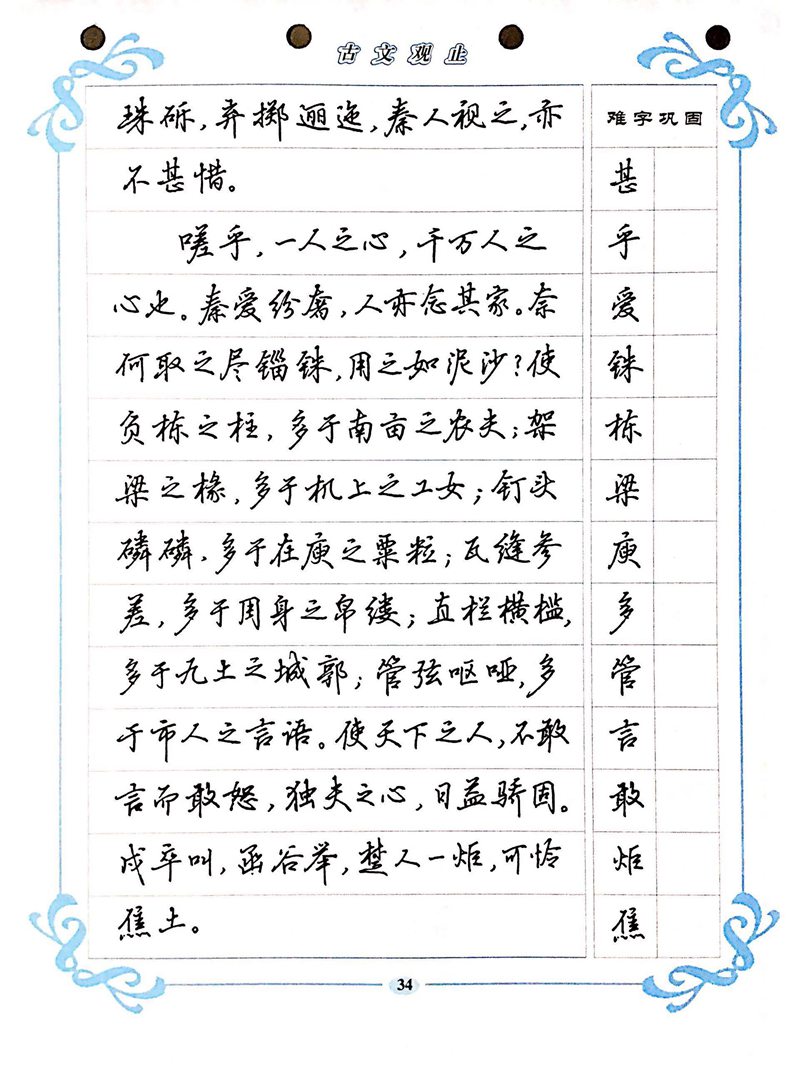 古文观止
珠砾，弃掷逦迤，秦人视之，亦
难字巩固
不甚惜。
甚
嗟乎，一人之心，千万人之
乎
心也。秦爱纷奢，人亦念其家。奈
爱
何取之尽锱铢，用之如泥沙？使
铢
负栋之柱，多于南亩之农夫；架
栋
梁之椽，多于机上之工女；钉头
梁
磷磷，多于在庾之粟粒；瓦缝参
庾
差，多于周身之帛缕；直栏横槛，
多
多于九土之城郭；管弦呕哑，多
管
于市人之言语。使天下之人，不敢
言
言而敢怒，独夫之心，日益骄固。
敢
戍卒叫，函谷举，楚人一炬，可怜
炬
焦土。
焦
34